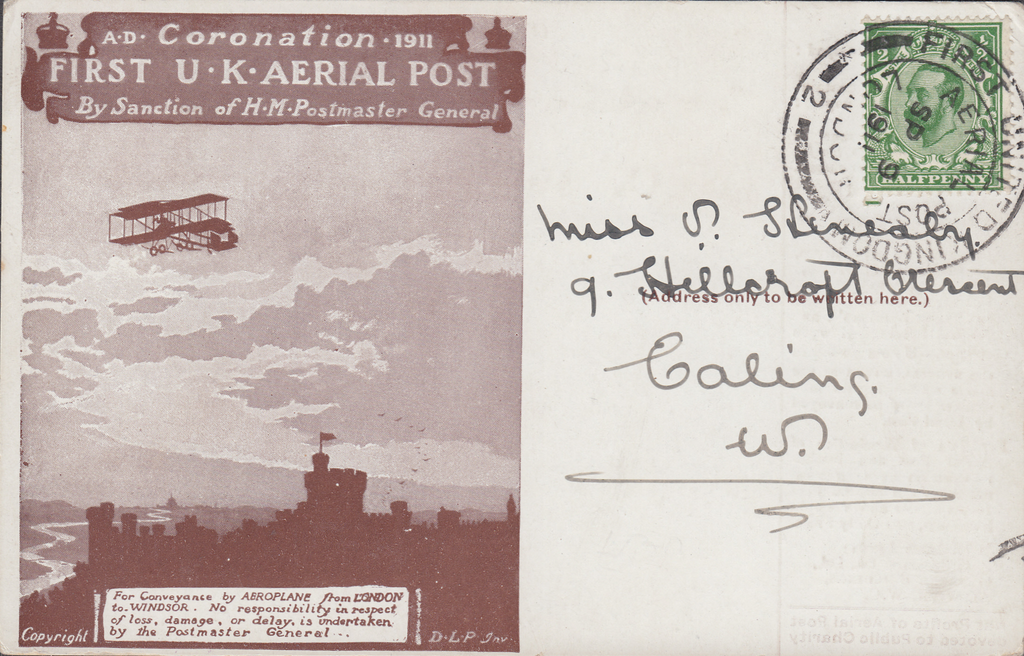 A·D· Coronation · 1911
FIRST U·K·AERIAL POST
By Sanction of H·M·Postmaster General
For Conveyance by AEROPLANE from LONDON
to WINDSOR. No responsibility in respect
of loss, damage, or delay, is undertaken
by the Postmaster General...
Copyright
D·L·P Inv·
FIRST UNITED KINGDOM
AERIAL POST
LONDON
SP 9
1911
2
HALFPENNY
Miss P.
9. Hillcroft Crescent
(Address only to be written here.)
Ealing.
W.